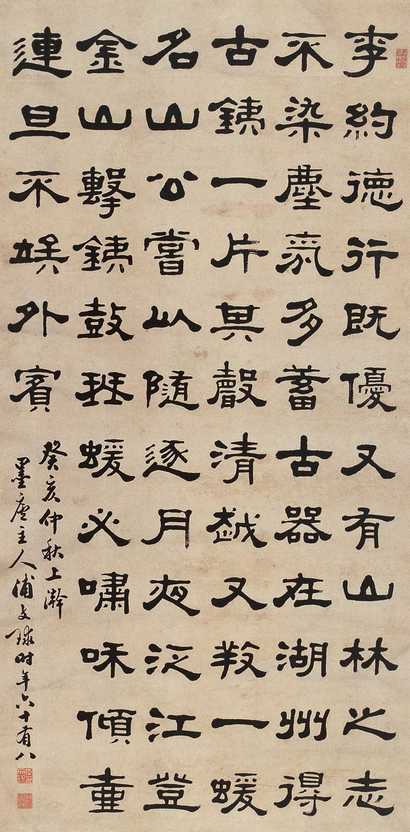 李約德行既優又有山林之志
不染塵氣多蓄古器在湖州得
古銕一片其聲清越又𢼝一蝯
名山公嘗以隨逐月夜泛江登
金山擊銕鼓珡蝯必嘯咊傾壷
達旦不竢外賓
癸亥仲秋上澣
墨主人浦文球時年六十有八